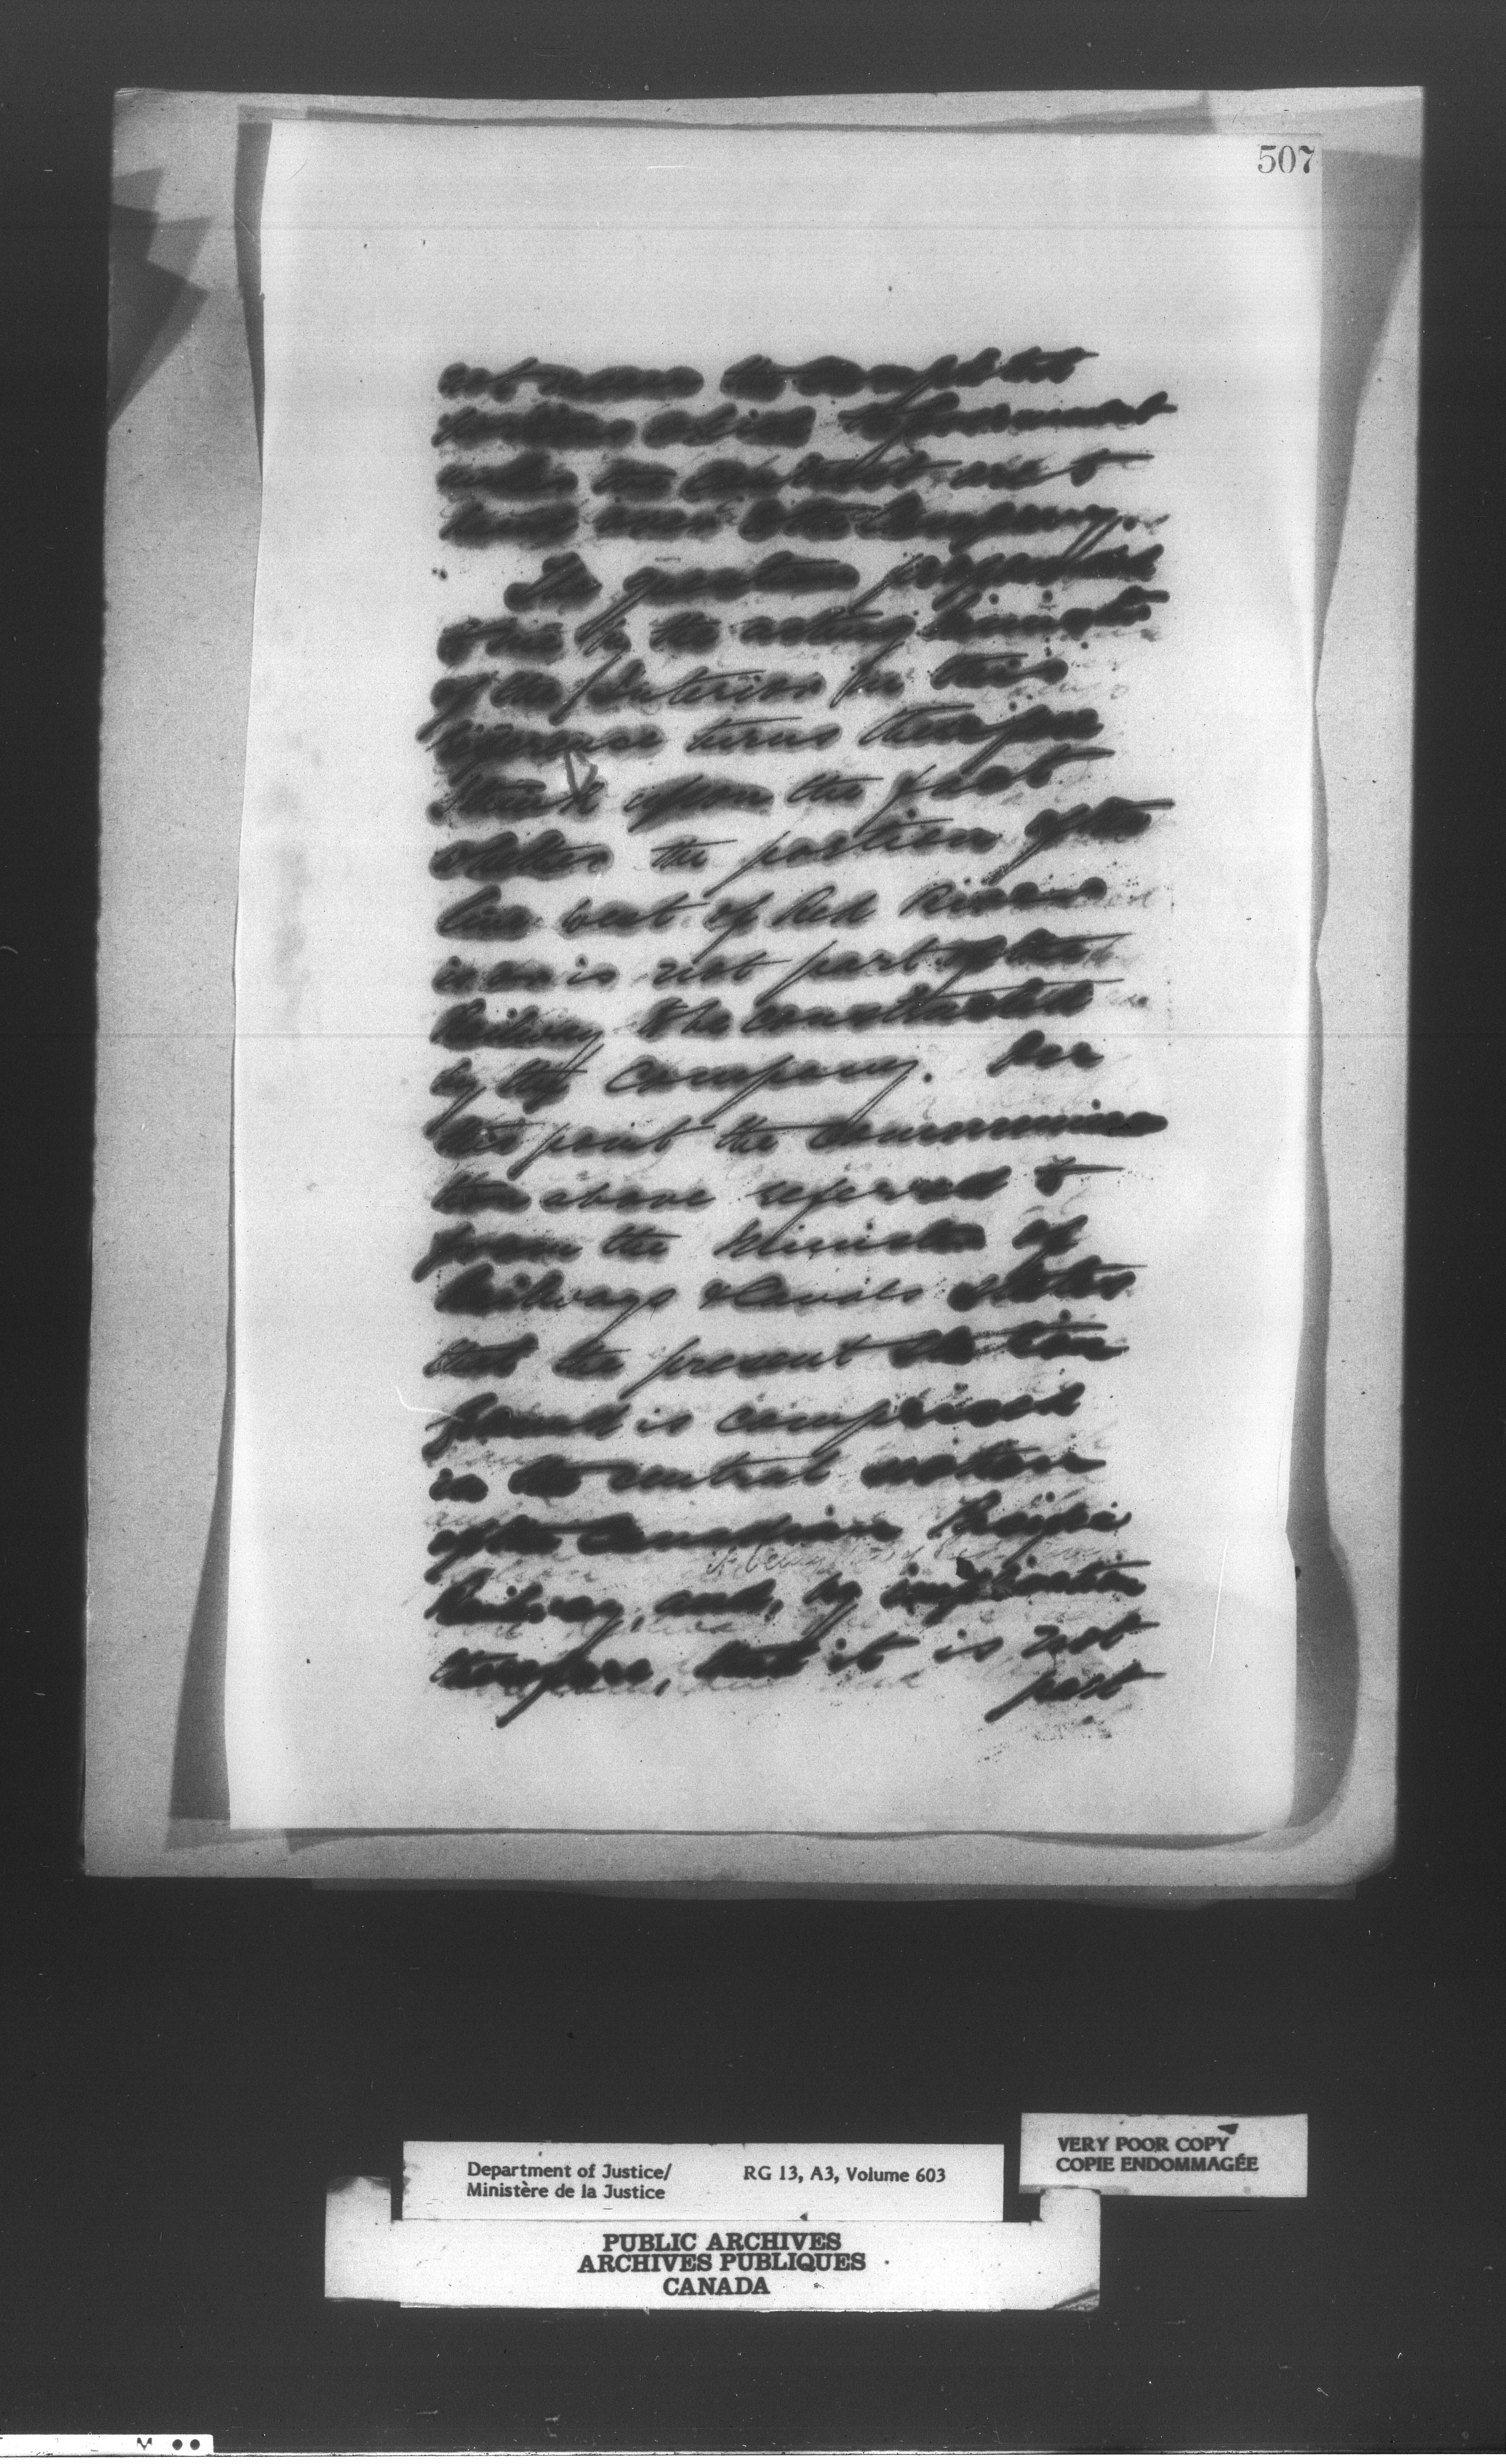 507
not mean the completed
portions which the Government
under the contract are to
hand over to the Company.
The question propounded
to me by the acting Minister
of the Interior in this
reference turns therefore
I think upon the fact
whether the portion of the
line west of Red River
is or is not part of the
Railway to be constructed
by the Company. On
this point the communica
tion above referred to
from the Minister of
Railways & Canals states
that the present station
ground is comprised
in the central section
of the Canadian Pacific
Railway, and, by implication
therefore, that it is not
part
Department of Justice/ RG 13, A3, Volume 603
Ministère de la Justice
VERY POOR COPY
COPIE ENDOMMAGÉE
PUBLIC ARCHIVES
ARCHIVES PUBLIQUES
CANADA